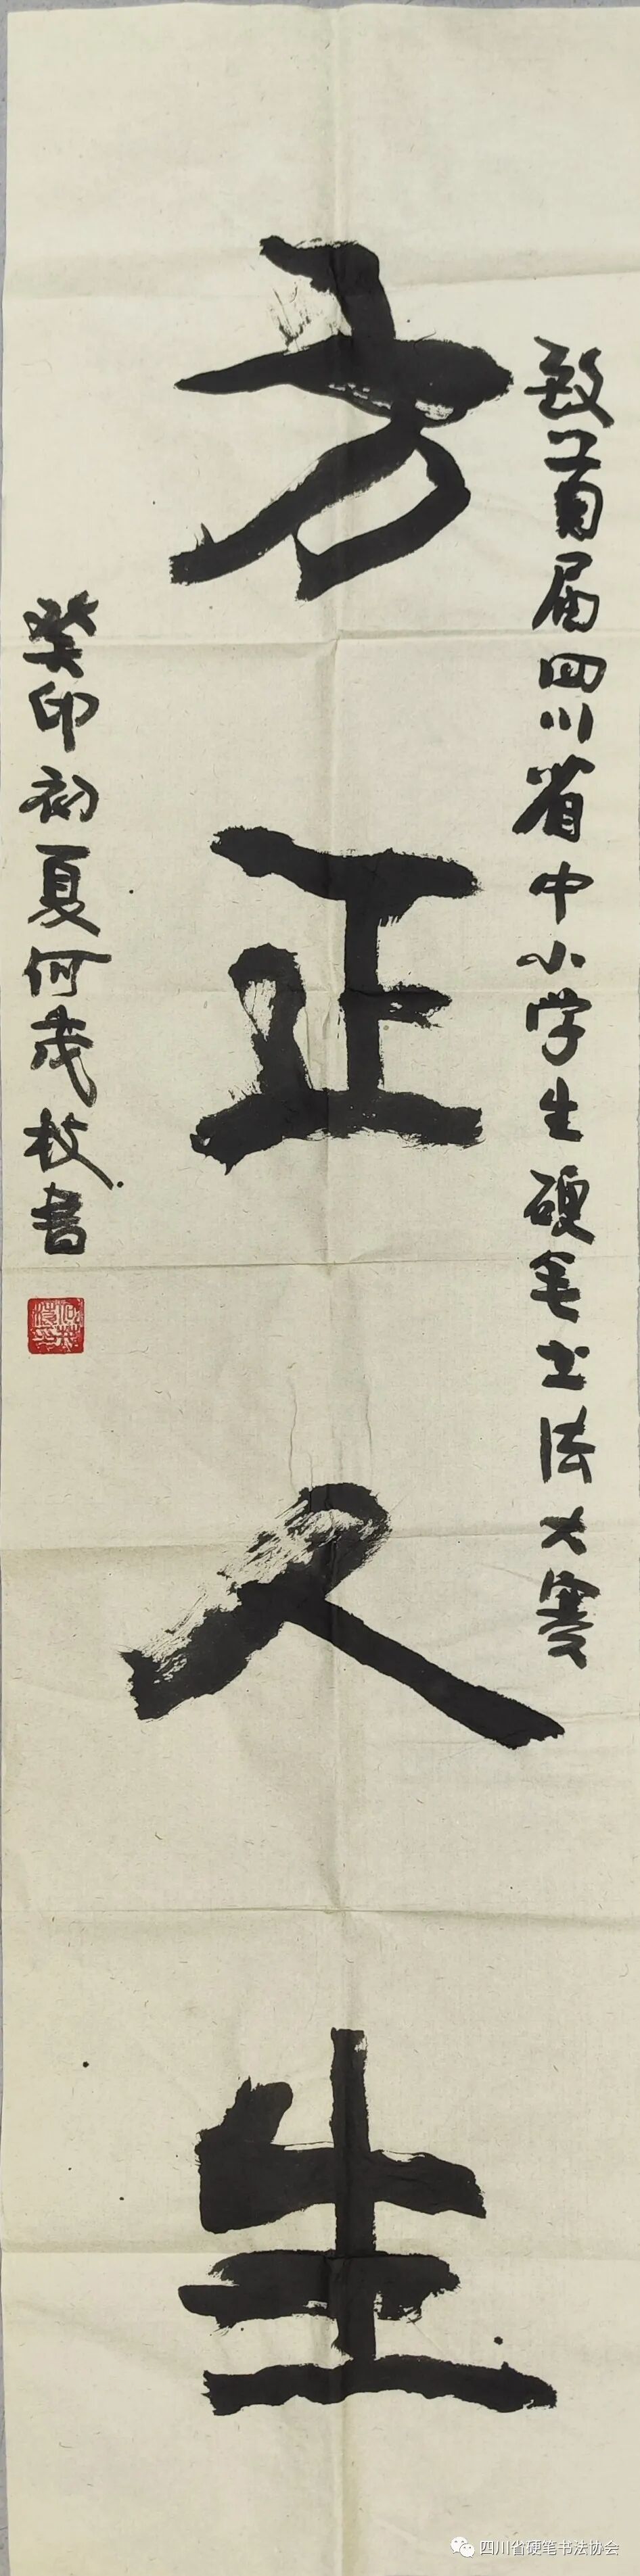 致首届四川省中小学生硬笔书法大赛
方正人生
癸卯初夏何茂枚书
四川省硬笔书法协会